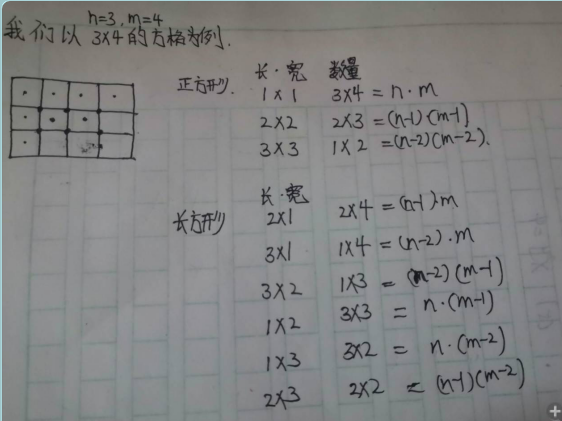 n=3, m=4
我们以 3×4 的方格为例.
长·宽 数量
正方形. 1×1 3×4=n·m
2×2 2×3=(n-1)(m-1)
3×3 1×2=(n-2)(m-2).
长·宽
长方形 2×1 2×4=(n-1)·m
3×1 1×4=(n-2)·m
3×2 1×3=(n-2)(m-1)
1×2 3×3=n·(m-1)
1×3 3×2=n·(m-2)
2×3 2×2=(n-1)(m-2)